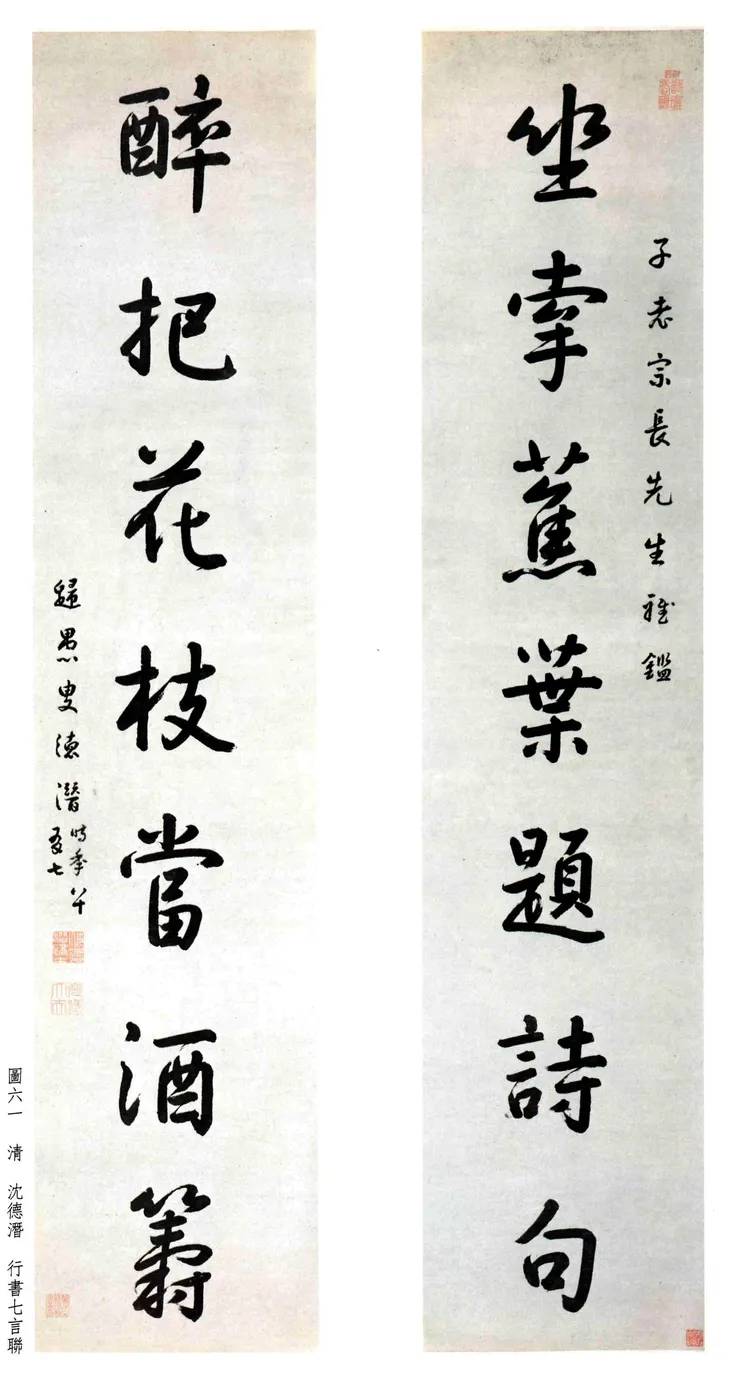 子老宗長先生雅鑑
坐牽蕉葉題詩句
醉把花枝當酒籌
歸愚叟德潛時年八十有七
圖六一 清 沈德潛 行書七言聯